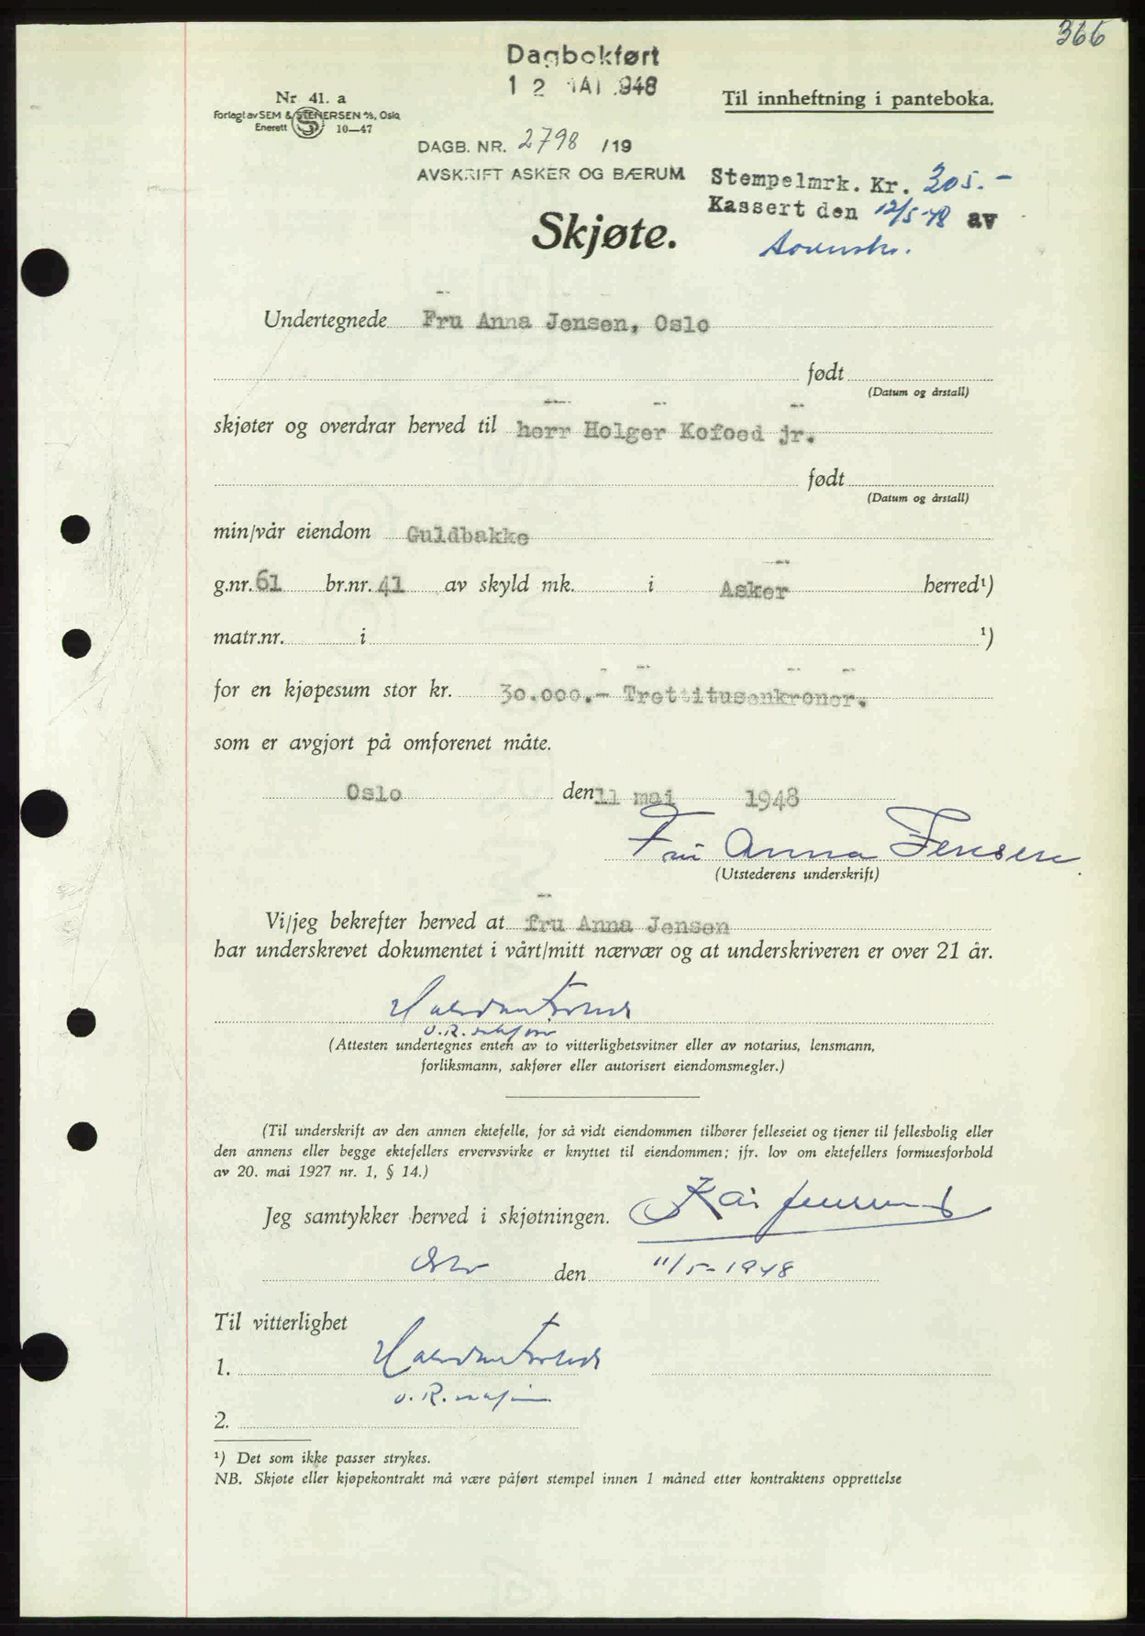 366
Dagbokført
12 MAI 1948
Nr 41. a
Forlagt av SEM & STENERSEN A/S, Oslo
Enerett 10—47
Til innheftning i panteboka.
DAGB. NR. 2798 /19
AVSKRIFT ASKER OG BÆRUM
Stempelmrk. Kr. 305.-
Kassert den 12/5-48 av
Skjøte.
Undertegnede Fru Anna Jensen, Oslo
født
(Datum og årstall)
skjøter og overdrar herved til herr Holger Kofoed jr.
født
(Datum og årstall)
min/vår eiendom Guldbakke
g.nr. 61 br.nr. 41 av skyld mk. i Asker herred¹)
matr.nr. i ¹)
for en kjøpesum stor kr. 30.000.- Trettitusenkroner.
som er avgjort på omforenet måte.
Oslo den 11 mai 1948
Fru Anna Jensen
(Utstederens underskrift)
Vi/jeg bekrefter herved at fru Anna Jensen
har underskrevet dokumentet i vårt/mitt nærvær og at underskriveren er over 21 år.
o.R.
(Attesten undertegnes enten av to vitterlighetsvitner eller av notarius, lensmann,
forliksmann, sakfører eller autorisert eiendomsmegler.)
(Til underskrift av den annen ektefelle, for så vidt eiendommen tilhører felleseiet og tjener til fellesbolig eller
den annens eller begge ektefellers ervervsvirke er knyttet til eiendommen; jfr. lov om ektefellers formuesforhold
av 20. mai 1927 nr. 1, § 14.)
Jeg samtykker herved i skjøtningen.
Oslo den 11/5-1948
Til vitterlighet
1.
o.R.
2.
¹) Det som ikke passer strykes.
NB. Skjøte eller kjøpekontrakt må være påført stempel innen 1 måned etter kontraktens opprettelse